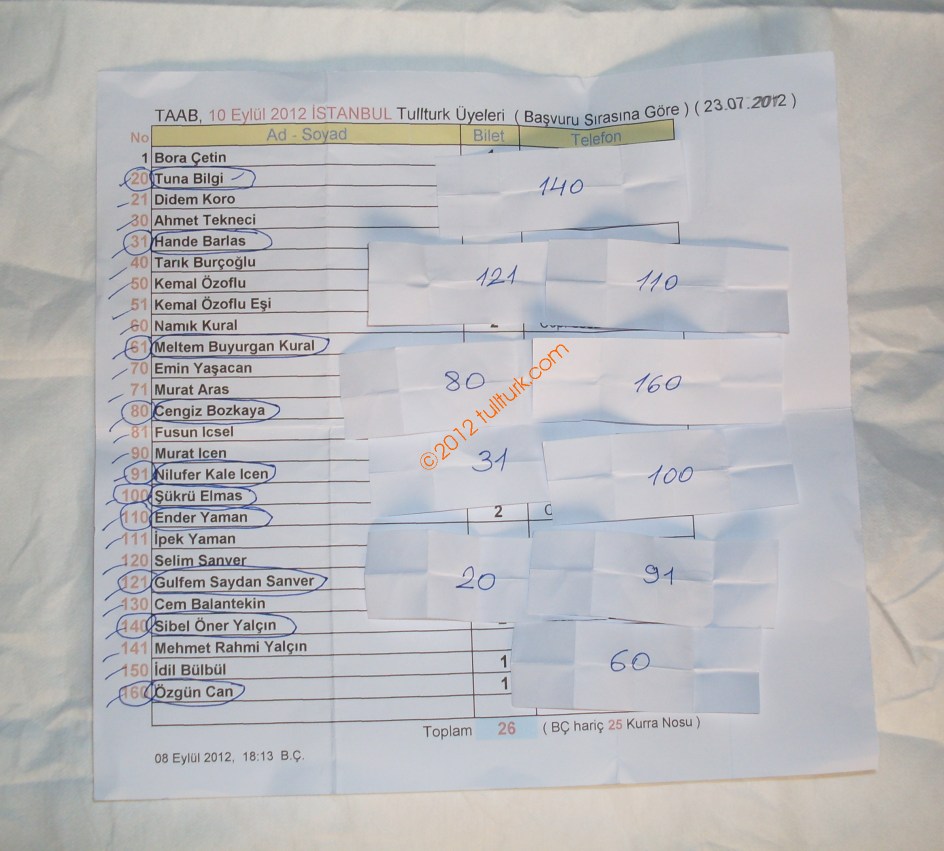 TAAB, 10 Eylül 2012 İSTANBUL Tullturk Üyeleri ( Başvuru Sırasına Göre ) ( 23.07.2012 )
No Ad - Soyad Bilet Telefon
1 Bora Çetin
20 Tuna Bilgi
140
21 Didem Koro
30 Ahmet Tekneci
31 Hande Barlas
40 Tarık Burçoğlu
121 110
50 Kemal Özoflu
51 Kemal Özoflu Eşi
60 Namık Kural
61 Meltem Buyurgan Kural
70 Emin Yaşacan
80 160
71 Murat Aras
80 Cengiz Bozkaya
©2012 tullturk.com
81 Fusun Icsel
90 Murat Icen
31
91 Nilufer Kale Icen
100
100 Şükrü Elmas
110 Ender Yaman 2
111 İpek Yaman
120 Selim Sanver
121 Gulfem Saydan Sanver
20 91
130 Cem Balantekin
140 Sibel Öner Yalçın
141 Mehmet Rahmi Yalçın
150 İdil Bülbül 1
60
160 Özgün Can 1
Toplam 26 ( BÇ hariç 25 Kurra Nosu )
08 Eylül 2012, 18:13 B.Ç.